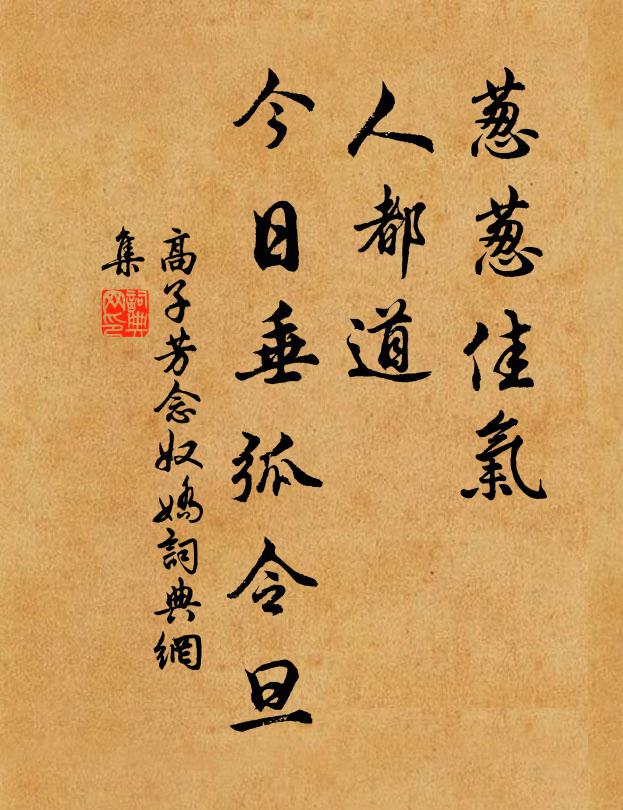 葱葱佳氣
人都道
今日垂弧令旦
高子芳念奴嬌詞典網
集
詞典
網印